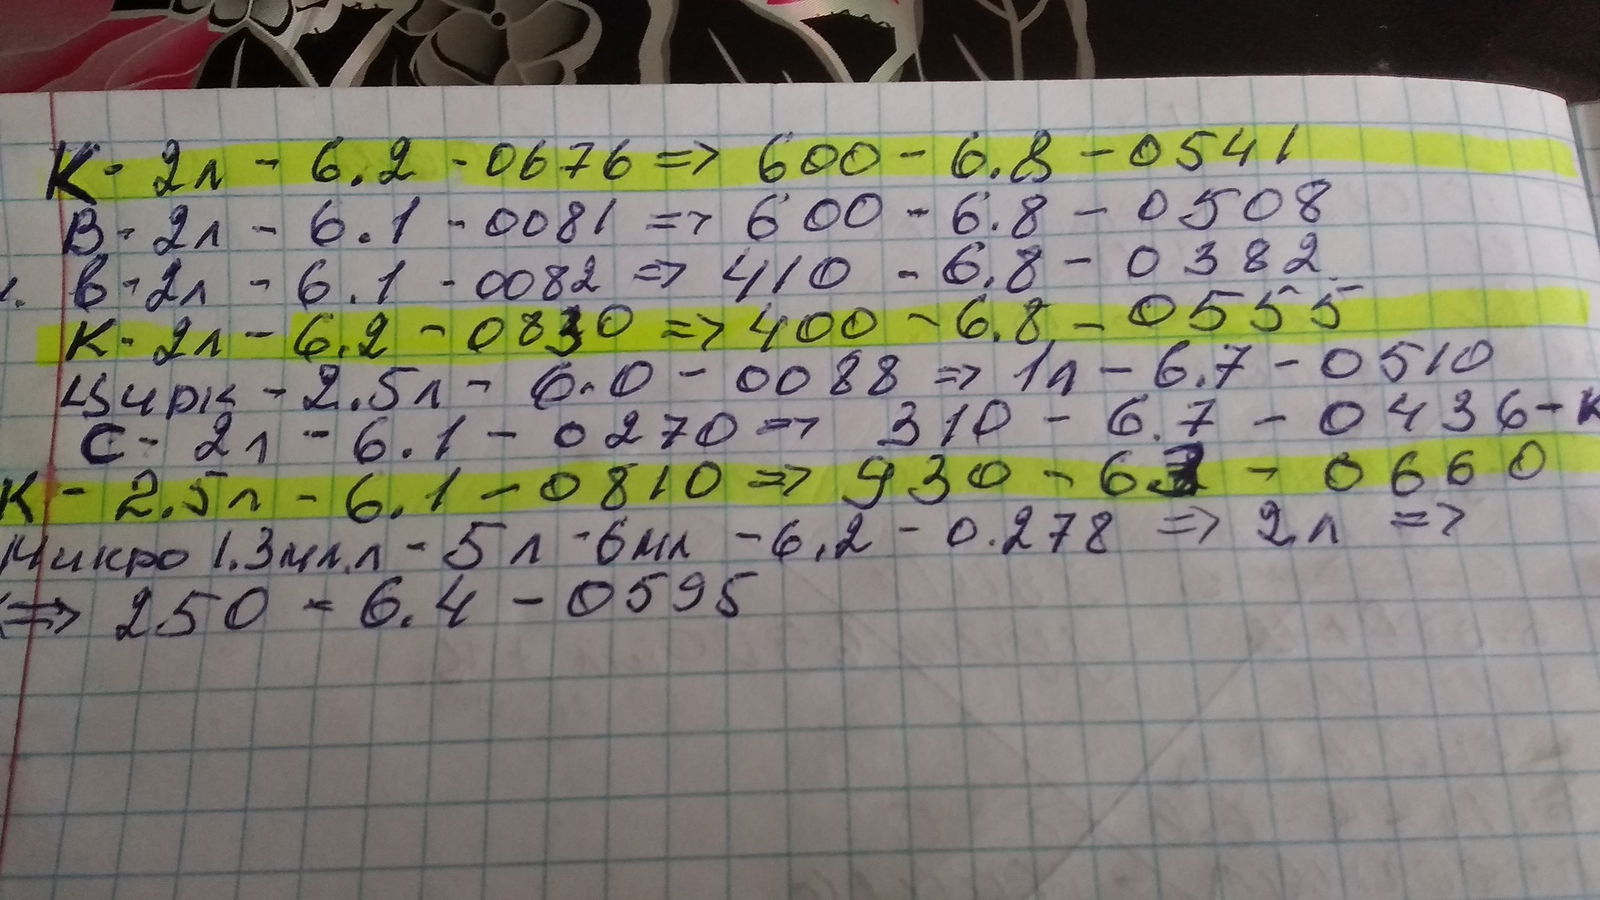 К - 2л - 6.2 - 0676 => 600 - 6.8 - 0541
В - 2л - 6.1 - 0081 => 600 - 6.8 - 0508
в - 2л - 6.1 - 0082 => 410 - 6.8 - 0382
К - 2л - 6.2 - 0830 => 400 - 6.8 - 0555
Цирк - 2.5л - 6.0 - 0088 => 1л - 6.7 - 0510
С - 2л - 6.1 - 0270 => 310 - 6.7 - 0436 - К
К - 2.5л - 6.1 - 0810 => 930 - - 0660
Микро 1.3мл.л - 5л - 6мл - 6.2 - 0.278 => 2л =>
=> 250 - 6.4 - 0595